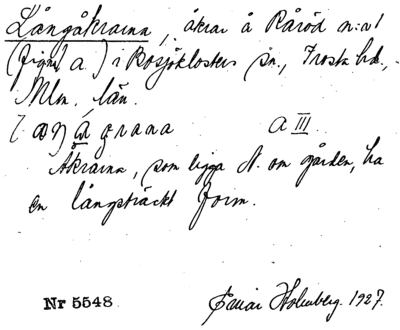 Långåkrarna, åkrar å Råröd n:o 1
(figur a) i Bosjökloster sn., Frosta hd.,
Mlm. län.
a III.
Åkrarna, som ligga N. om gården, ha
en långsträckt form.
Nr 5548 Holmberg. 1927.